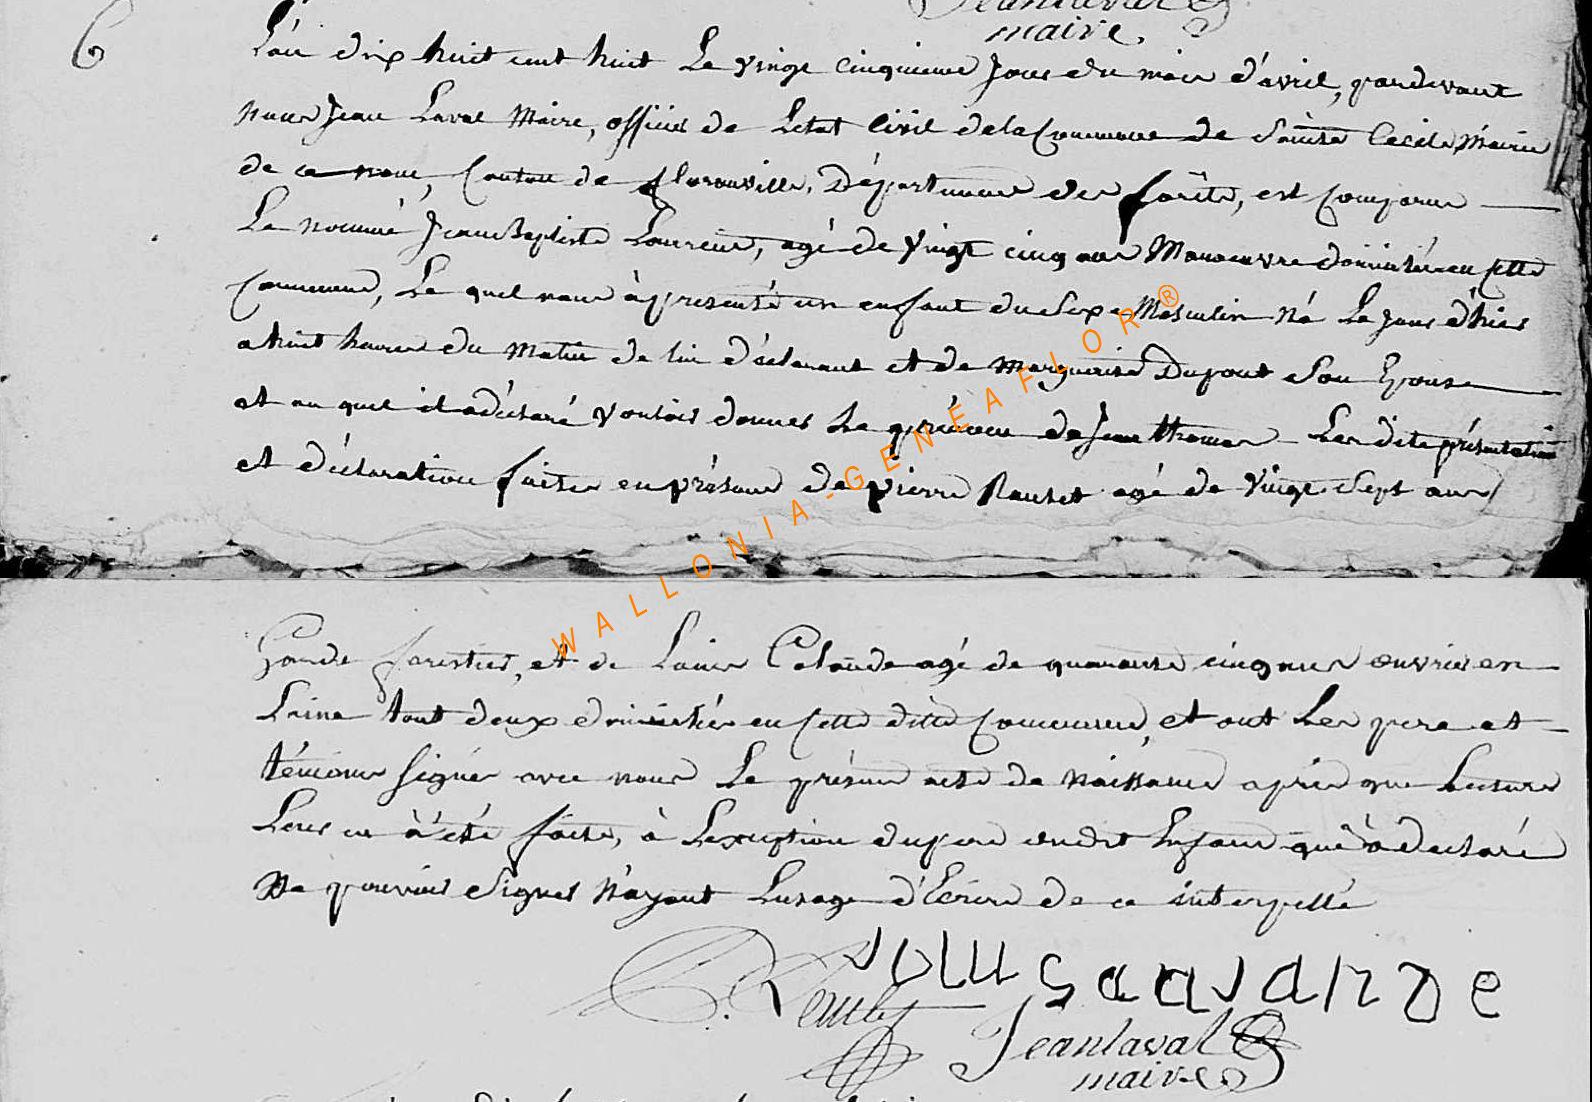 Jeanlaval
maire
6
L'an dix huit cent huit Le vingt cinquieme Jour du mois d'avril, pardevant
Nous Jean Laval Maire, officier de Letat Civil de la Commune de Sainte Cecile, Mairie
de ce nom, Canton de florenville, Département des forêts, est comparu
Le nommé Jean Baptiste Laurent, agé de vingt cinq ans Manoeuvre domicilié en cette
Commune, Le quel nous à présenté un enfant du Sexe Masculin Né Le jour d'hier
a huit heures du Matin de lui déclarant et de Marguerite Dupont Son Epouse
et au quel il a déclaré vouloir donner Le prénom de Jean thomas Les dite présentation
et déclaration faites en présence de pierre Raulet agé de Vingt Sept ans
Garde forestier, et de Louis agé de quarante cinq ans ouvrier en
Laine tout deux domiciliés en Cette ditte Commune, et ont Les pere et
témoins Signés avec nous Le présent acte de Naissance après que Lecture
Leur en à été faite, à Lexception du pere dudit Enfant qui à déclaré
Ne pouvoir Signer N'ayant Lusage d'Ecrire de ce interpellé
WALLONIA-GENEAFLOR®
Jeanlaval
maire